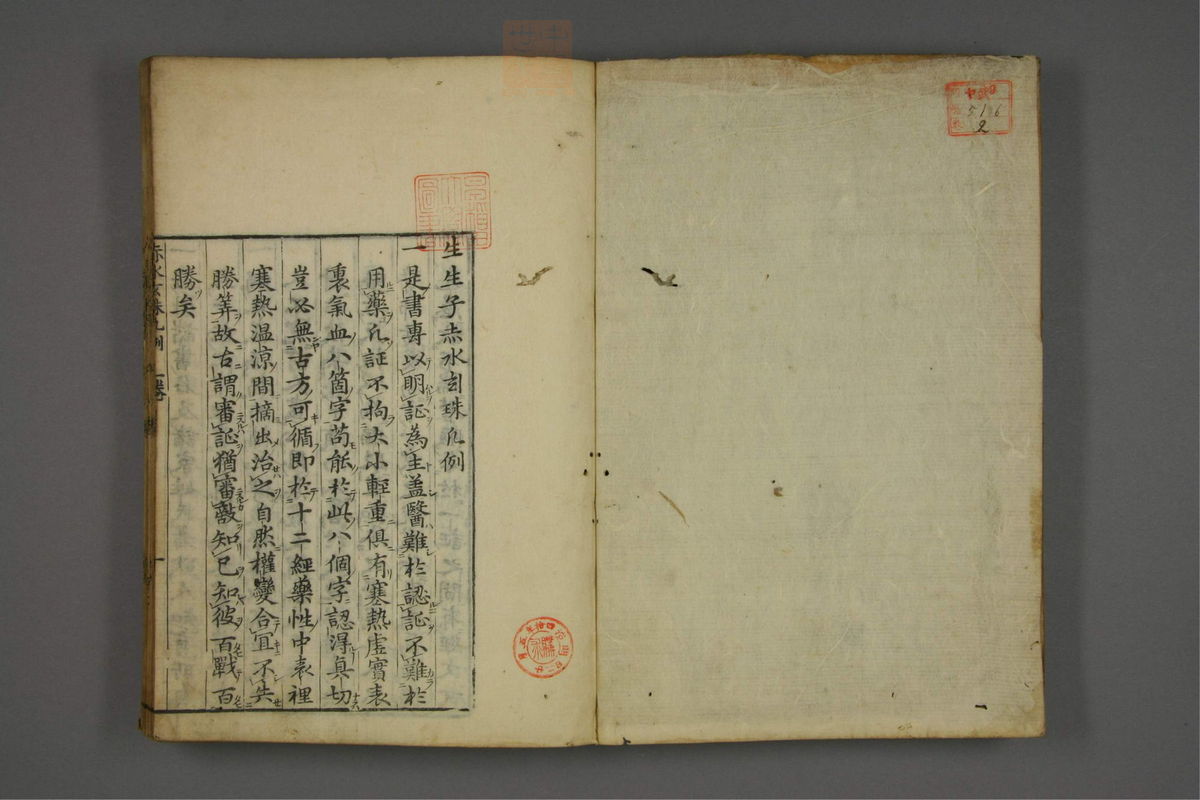 生生子赤水玄珠凡例
一是書專以明証為主盖醫難於認証不難於
用藥凡証不拘大小輕重俱有寒熱虛實表
裏氣血八箇字苟能於此八個字認得真切
豈必無古方可循即於十二經藥性中表裡
寒熱温涼間摘出治之自然權變合宜不失
勝筭故古謂審証猶審敵知已知彼百戰百
勝矣
赤水玄珠凡例
一
516
2